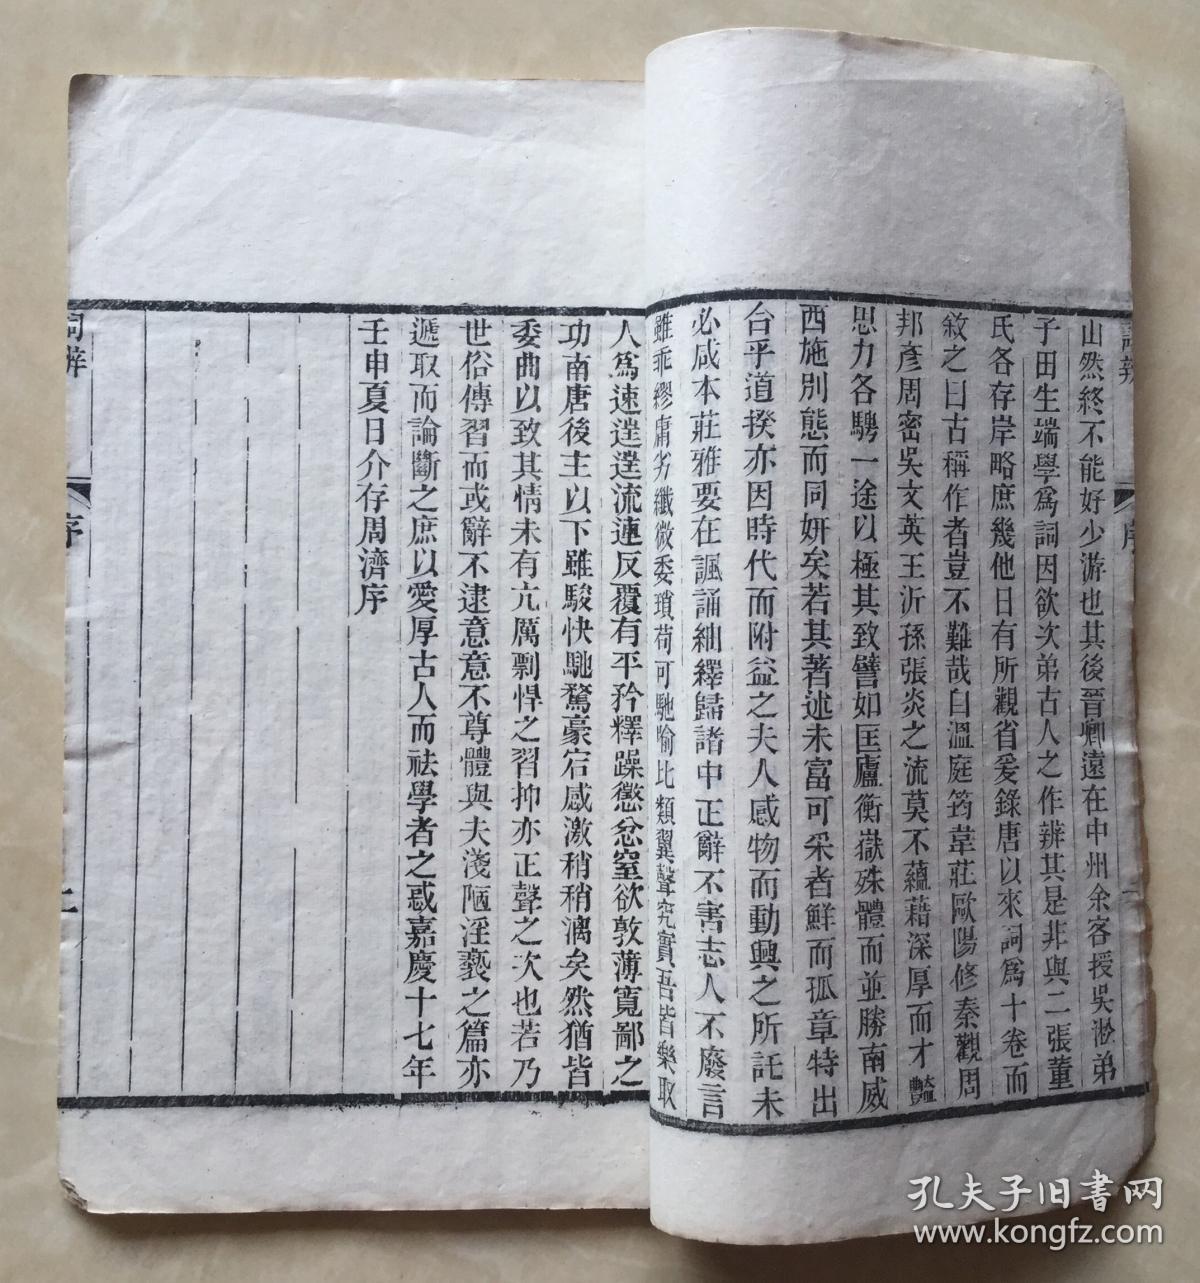 詞辨
序
山然終不能好少游也其後晉卿遠在中州余客授吳淞弟
子田生端學爲詞因欲次弟古人之作辨其是非與二張董
氏各存岸略庶幾他日有所觀省爰錄唐以來詞爲十卷而
敘之曰古稱作者豈不難哉自溫庭筠韋莊歐陽修秦觀周
邦彥周密吳文英王沂孫張炎之流莫不蘊藉深厚而才豔
思力各騁一途以極其致譬如匡廬衡嶽殊體而並勝南威
西施別態而同妍矣若其著述未富可采者鮮而孤章特出
合乎道揆亦因時代而附益之夫人感物而動興之所託未
必咸本莊雅要在諷誦紬繹歸諸中正辭不害志人不廢言
雖乖繆庸劣纖微委瑣苟可馳喻比類翼聲究實吾皆樂取
人爲速遑遑流連反覆有平矜釋躁懲忿窒欲敦薄寬鄙之
功南唐後主以下雖駿快馳騖豪宕感激稍稍漓矣然猶皆
委曲以致其情未有亢厲剽悍之習抑亦正聲之次也若乃
世俗傳習而或辭不逮意意不尊體與夫淺陋淫褻之篇亦
遞取而論斷之庶以愛厚古人而祛學者之惑嘉慶十七年
壬申夏日介存周濟序
詞辨
序
二
孔夫子旧书网
www.kongfz.com